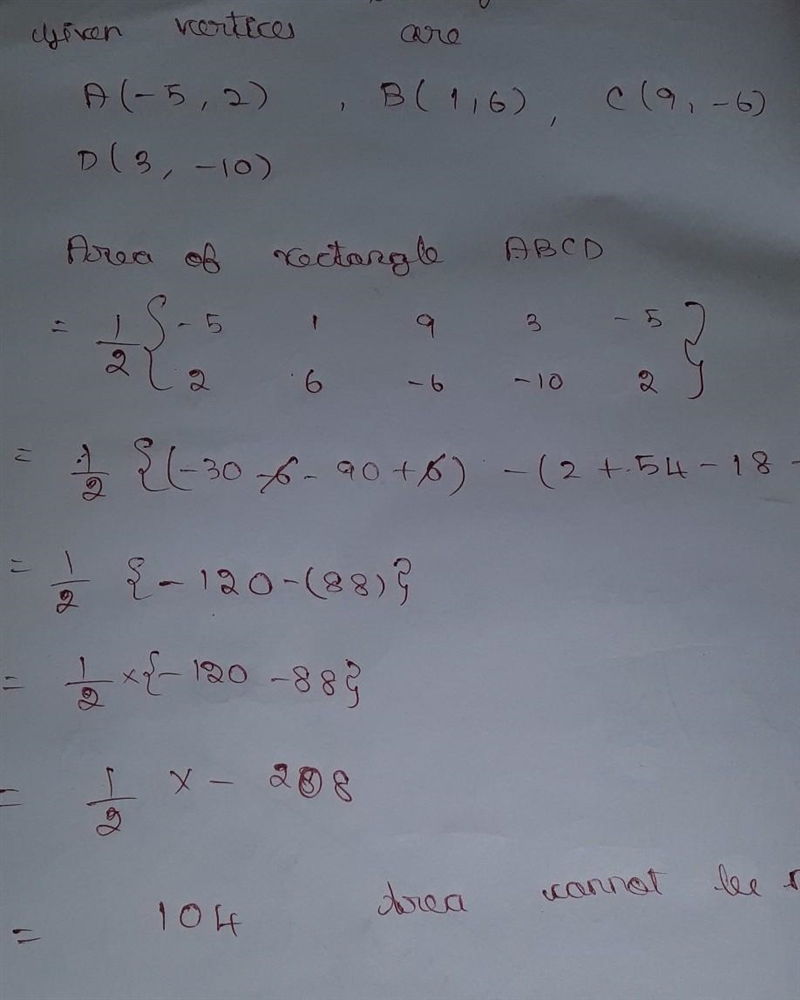 Given vertices are
A(-5, 2) , B(1,6), C(9, -6)
D(3, -10)
Area of rectangle ABCD
= 1/2 { -5 1 9 3 -5 }
2 6 -6 -10 2
= 1/2 {(-30 -6 - 90 +6) - (2 + 54 - 18 -
= 1/2 {- 120 -(88)}
= 1/2 ×{- 120 -88}
= 1/2 × - 208
= 104 Area cannot be